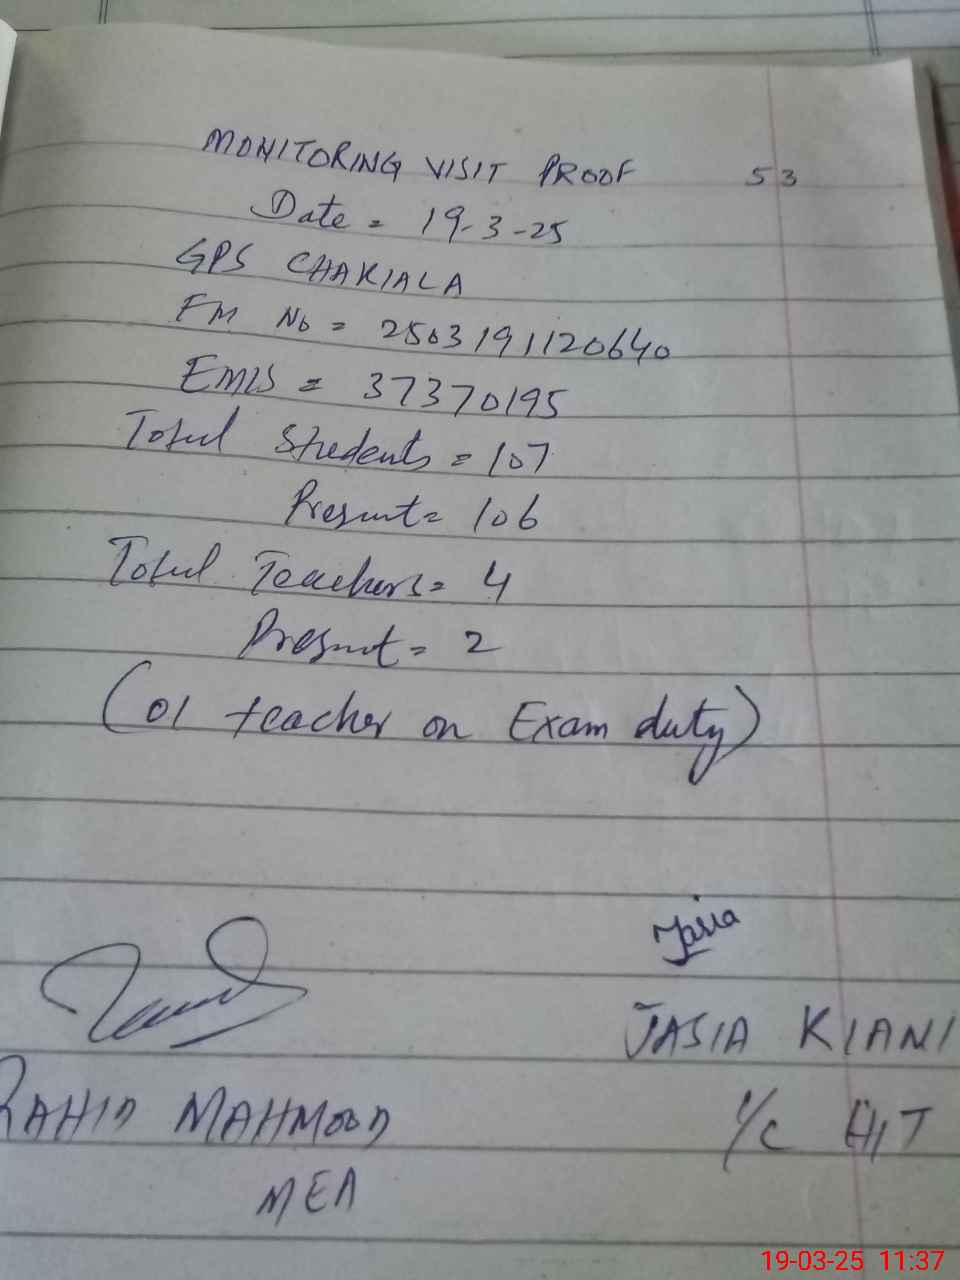 MONITORING VISIT PROOF 53
Date = 19-3-25
GPS CHAKIALA
FM No = 2503191120640
EMIS = 37370195
Total Students = 107
Present = 106
Total Teachers = 4
Present = 2
(01 teacher on Exam duty)
Jasia
JASIA KIANI
MAHMOOD
I/C H,T
MEA
19-03-25 11:37